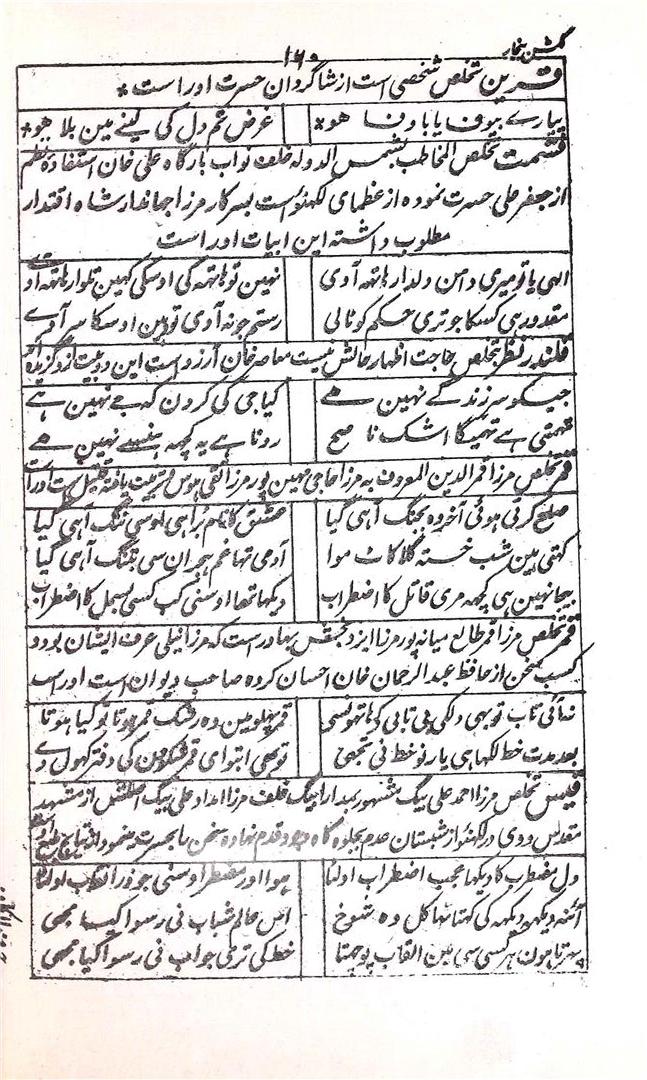 گلشن بیخار
۱۶۰
قرین تخلص شخصی است از شاگردان حسرت اوراست *
پیارے بیوفا یا باوفا ہو * غرض غم دل کی لینے مین بلا ہو *
قسمت تخلص المخاطب بشمس الدولہ خلف نواب بارگاہ علی خان استفادہ نظم
از جعفر علی حسرت نمودہ از عظمای لکھنؤ است بسرکار مرزا جہاندار شاہ اقتدار
مطلوب داشتہ این ابیات اوراست
الہی یا تو میری دامن دلدار ہاتھہ آوی نہین تو ہاتھہ کی اوسکی کہین تلوار ہاتھہ آوے
مقدور ہی کسکا جو تری حکم کو ٹالی رستم جو نہ آوی تو وہین اوسکا سر آوے
قلندر تخلص حاجت اظہار حالش نیست معاصر خان آرزو است این دو بیت ازو گزیدہ آمد
جیکو سر زندگے نہین ہے کیا جی کی کرون کہ جے نہین ہے
تہمتی ہے تہمیگا اشک ناصح رونا ہے یہ کچھہ ہنسے نہین ہے
قمر تخلص مرزا قمر الدین المعروف بہ مرزا حاجی مہین پور مرزا تقی ہوس تربیت یافتہ قتیل است اوراست
صلح کرتی ہوئی آخر وہ بجنگ آہی گیا عشق کا نام براہی اوسی ننگ آہی گیا
کہتی ہین شب خستہ گلا کاٹ موا آدمی تہا غم ہجران سی بتنگ آہی گیا
بیجا نہین ہی کچھہ مری قاتل کا اضطراب دیکہا تہا اوسنی کب کسی بسمل کا اضطراب
قمر تخلص مرزا قمر طالع میانہ پور مرزا ایزد بخش بہادر است کہ مرزا نیلی عرف ایشان بود و
کسب سخن از حافظ عبدالرحمان خان احسان کردہ صاحب دیوان است اوراست
نہ آئی تاب تو بہی دلکی بی تابی کی ہاتھونسی قمر پہلو مین وہ رشک قمر ہوتا تو کیا ہوتا
بعد مدت خط لکہا ہی یار نو خط نی تجہی تو بہی ابتو ای قمر شکوون کی دفتر کہول دے
قیس تخلص مرزا احمد علی بیگ مشہور بمدارا بیگ خلف مرزا امداد علی بیگ اصلش از مشہد
مقدس و وی در لکھنؤ از شبستان عدم بجلوہ گاہ وجود قدم نہادہ سخن با حسرت نمود از نتایج طبع
دل مضطرب کا دیکہا عجب اضطراب اولٹا ہوا اور مضطر اوسنی جو ذرا نقاب اولٹا
آئنہ دیکہہ دیکہہ کی کہتا تہا کل وہ شوخ اس عالم شباب نی رسوا کیا مجہی
پہرتا ہون ہر کسی سی مین القاب پوچہتا خط کی تری جواب نی رسوا کیا مجہی